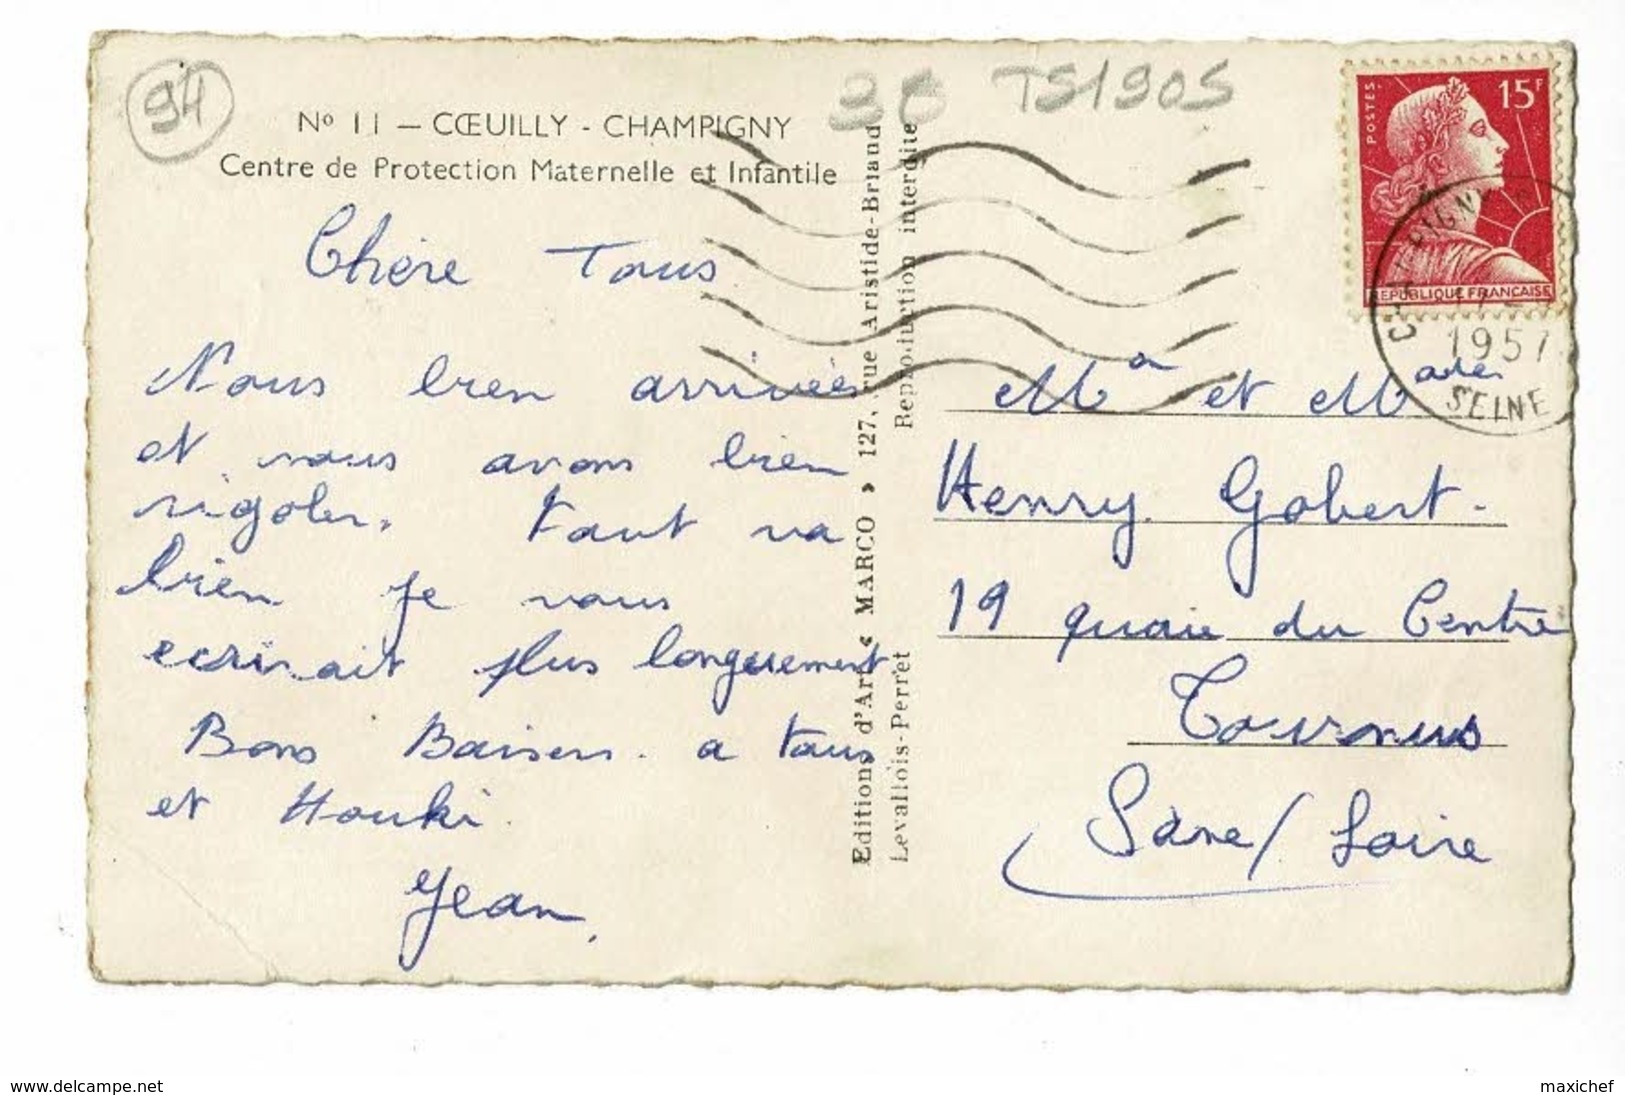 94
3€ TS1905
Nº 11 — CŒUILLY - CHAMPIGNY
Centre de Protection Maternelle et Infantile
Chère Tous
Nous bien arrivées
et nous avons bien
rigoler. Tout va
bien je vous
ecrirait plus longuement
Bons Baisers. a tous
et Houki.
Jean.
Editions d'Art « MARCO » 127, rue Aristide-Briand
Levallois-Perret Reproduction interdite
POSTES
15F
REPUBLIQUE FRANÇAISE
CHAMPIGNY
1957
SEINE
Mr et Mades
Henry Gobert.
19 quaie du Centre
Tournus
Saône/Loire
www.delcampe.net
maxichef